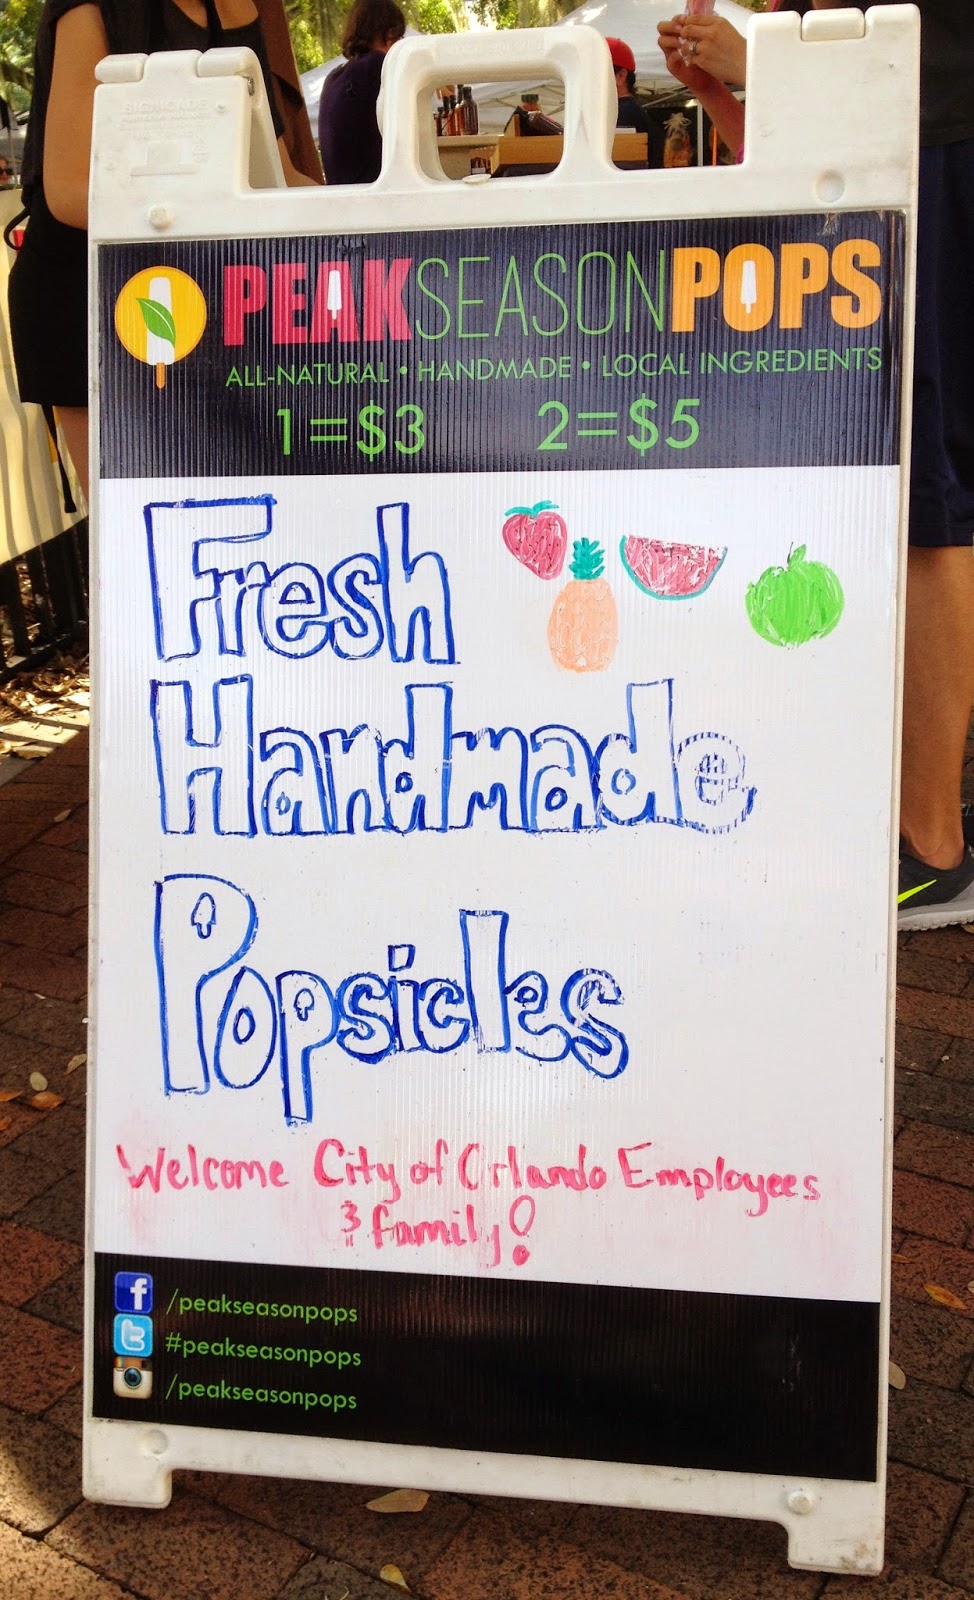 PEAKSEASONPOPS
ALL-NATURAL • HANDMADE • LOCAL INGREDIENTS
1=$3 2=$5
Fresh
Handmade
Popsicles
Welcome City of Orlando Employees
& family!
/peakseasonpops
#peakseasonpops
/peakseasonpops